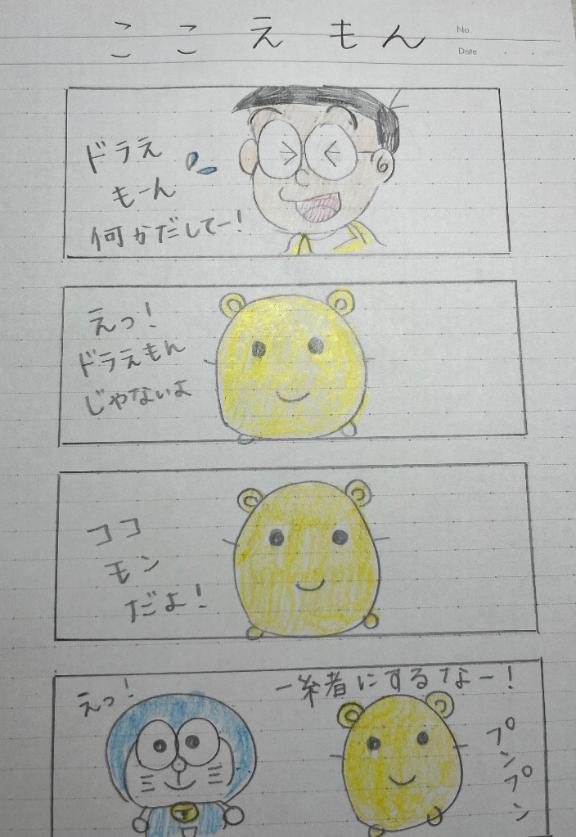 ここえもん
No.
Date
ドラえ
もーん
何かだしてー!
えっ!
ドラえもん
じゃないよ
ココ
モン
だよ!
えっ!
一糸者にするなー!
プンプン